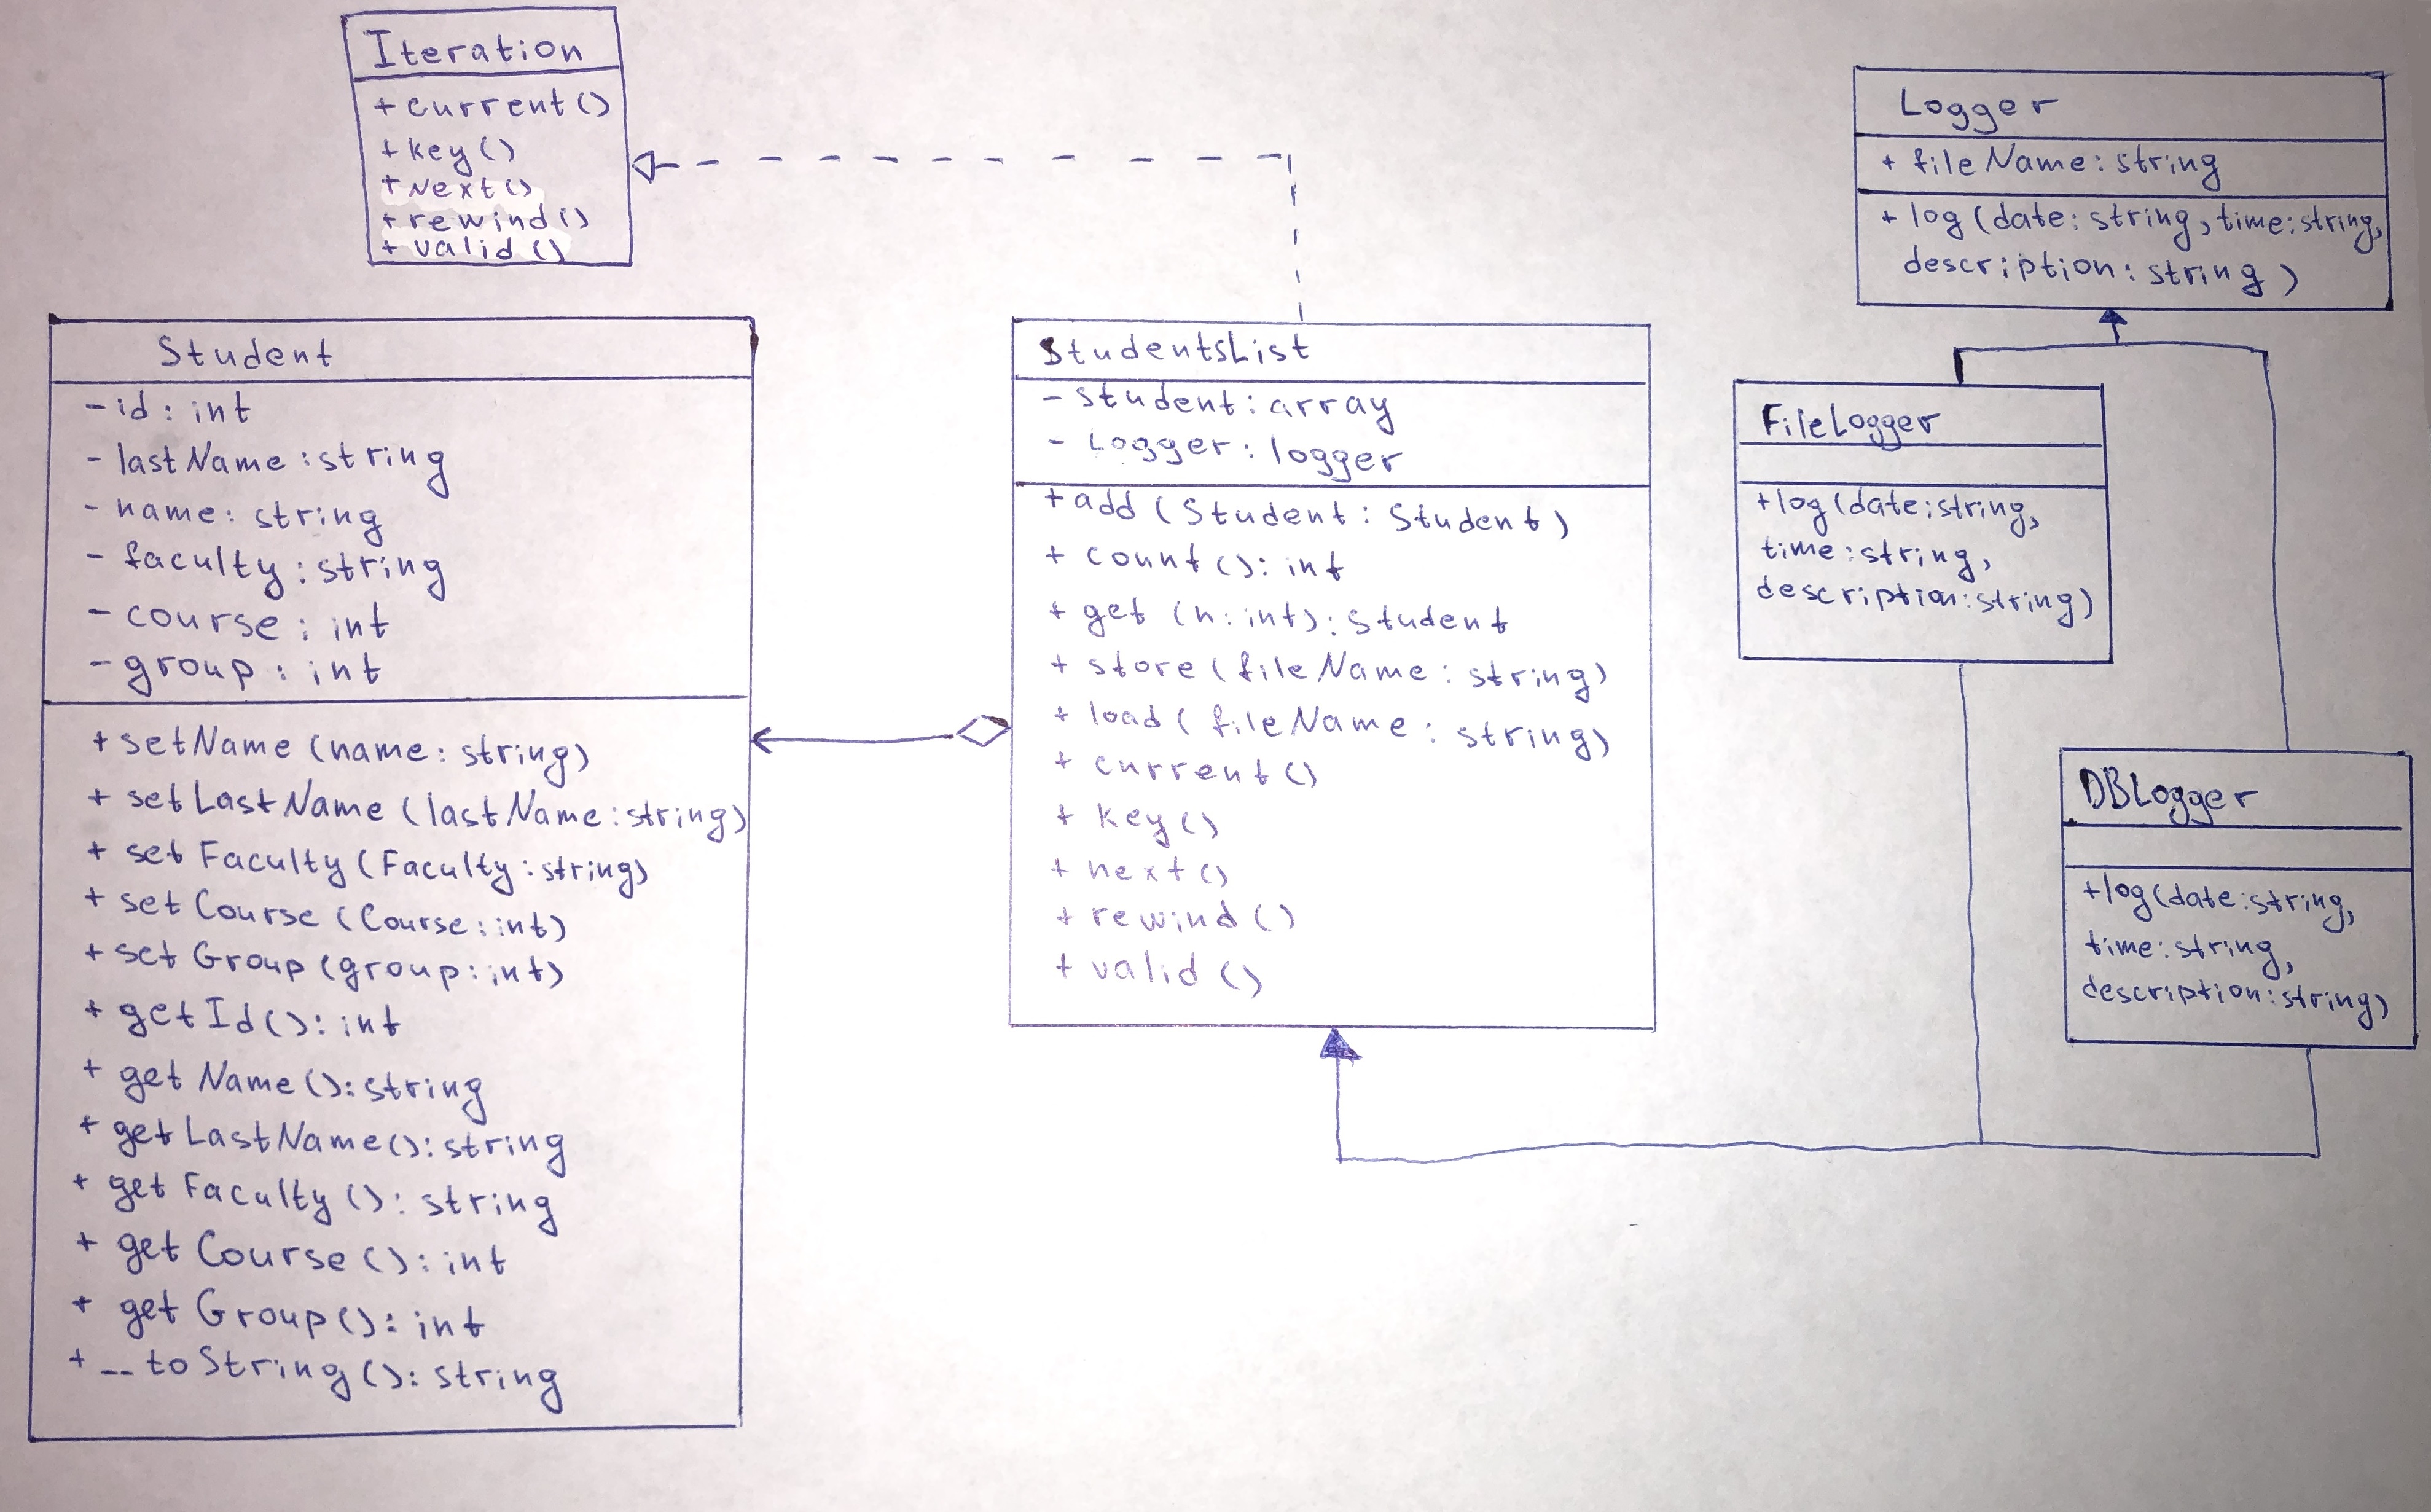 Iteration
+ current()
+ key()
+ next()
+ rewind()
+ valid()
Student
- id: int
- lastName: string
- name: string
- faculty: string
- course: int
- group: int
+ setName (name: string)
+ setLastName (lastName: string)
+ set Faculty (Faculty: string)
+ set Course (Course: int)
+ set Group (group: int)
+ get Id (): int
+ get Name (): string
+ getLastName(): string
+ get Faculty (): string
+ get Course (): int
+ get Group (): int
+ --toString(): string
StudentsList
- student: array
- Logger: logger
+ add (Student: Student)
+ count (): int
+ get (n: int): Student
+ store (fileName: string)
+ load (fileName: string)
+ current ()
+ key()
+ next()
+ rewind ()
+ valid ()
FileLogger
+log(date:string,
time:string,
description:string)
Logger
+ fileName: string
+ log(date: string, time: string,
description: string)
DBLogger
+log(date:string,
time:string,
description:string)